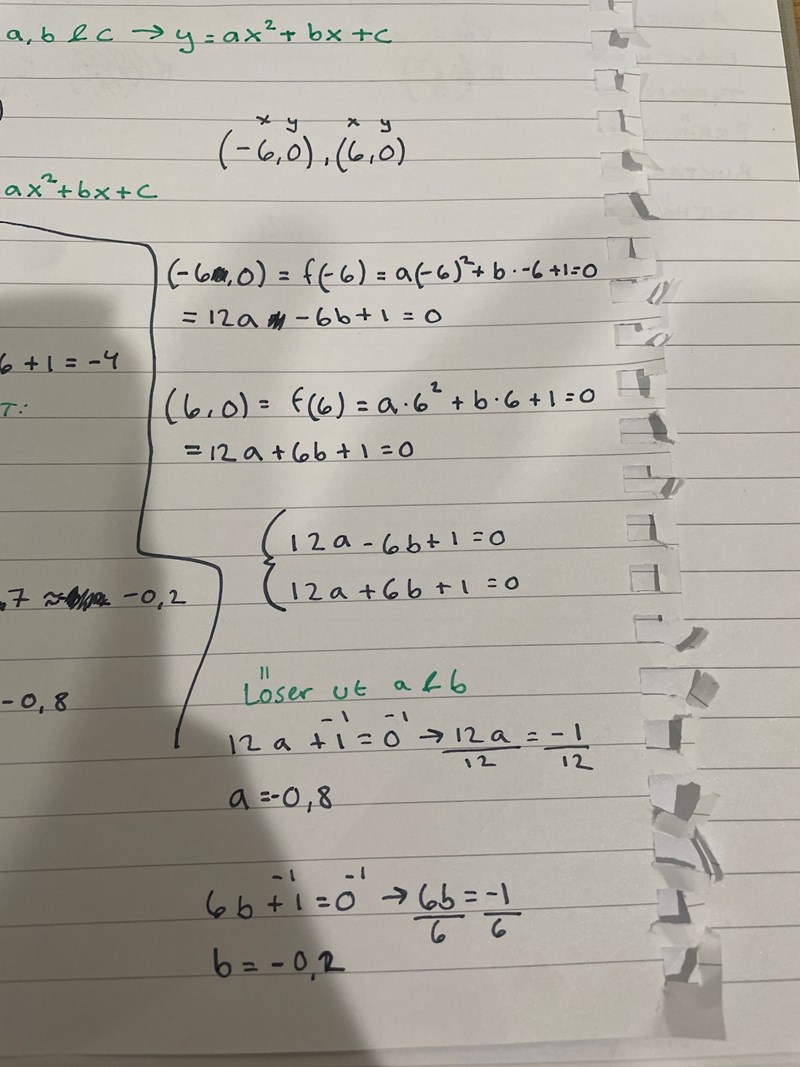 a, b & c → y = ax² + bx + c
x y x y
(-6,0), (6,0)
ax² + bx + c
(-6,0) = f(-6) = a(-6)² + b · -6 + 1 = 0
= 12a - 6b + 1 = 0
6 + 1 = -4
T:
(6,0) = f(6) = a · 6² + b · 6 + 1 = 0
= 12a + 6b + 1 = 0
12a - 6b + 1 = 0
12a + 6b + 1 = 0
,7 ≈ -0,2
-0,8
Löser ut a & b
-1 -1
12a + 1 = 0 → 12a = -1
12 12
a = -0,8
-1 -1
6b + 1 = 0 → 6b = -1
6 6
b = -0,2